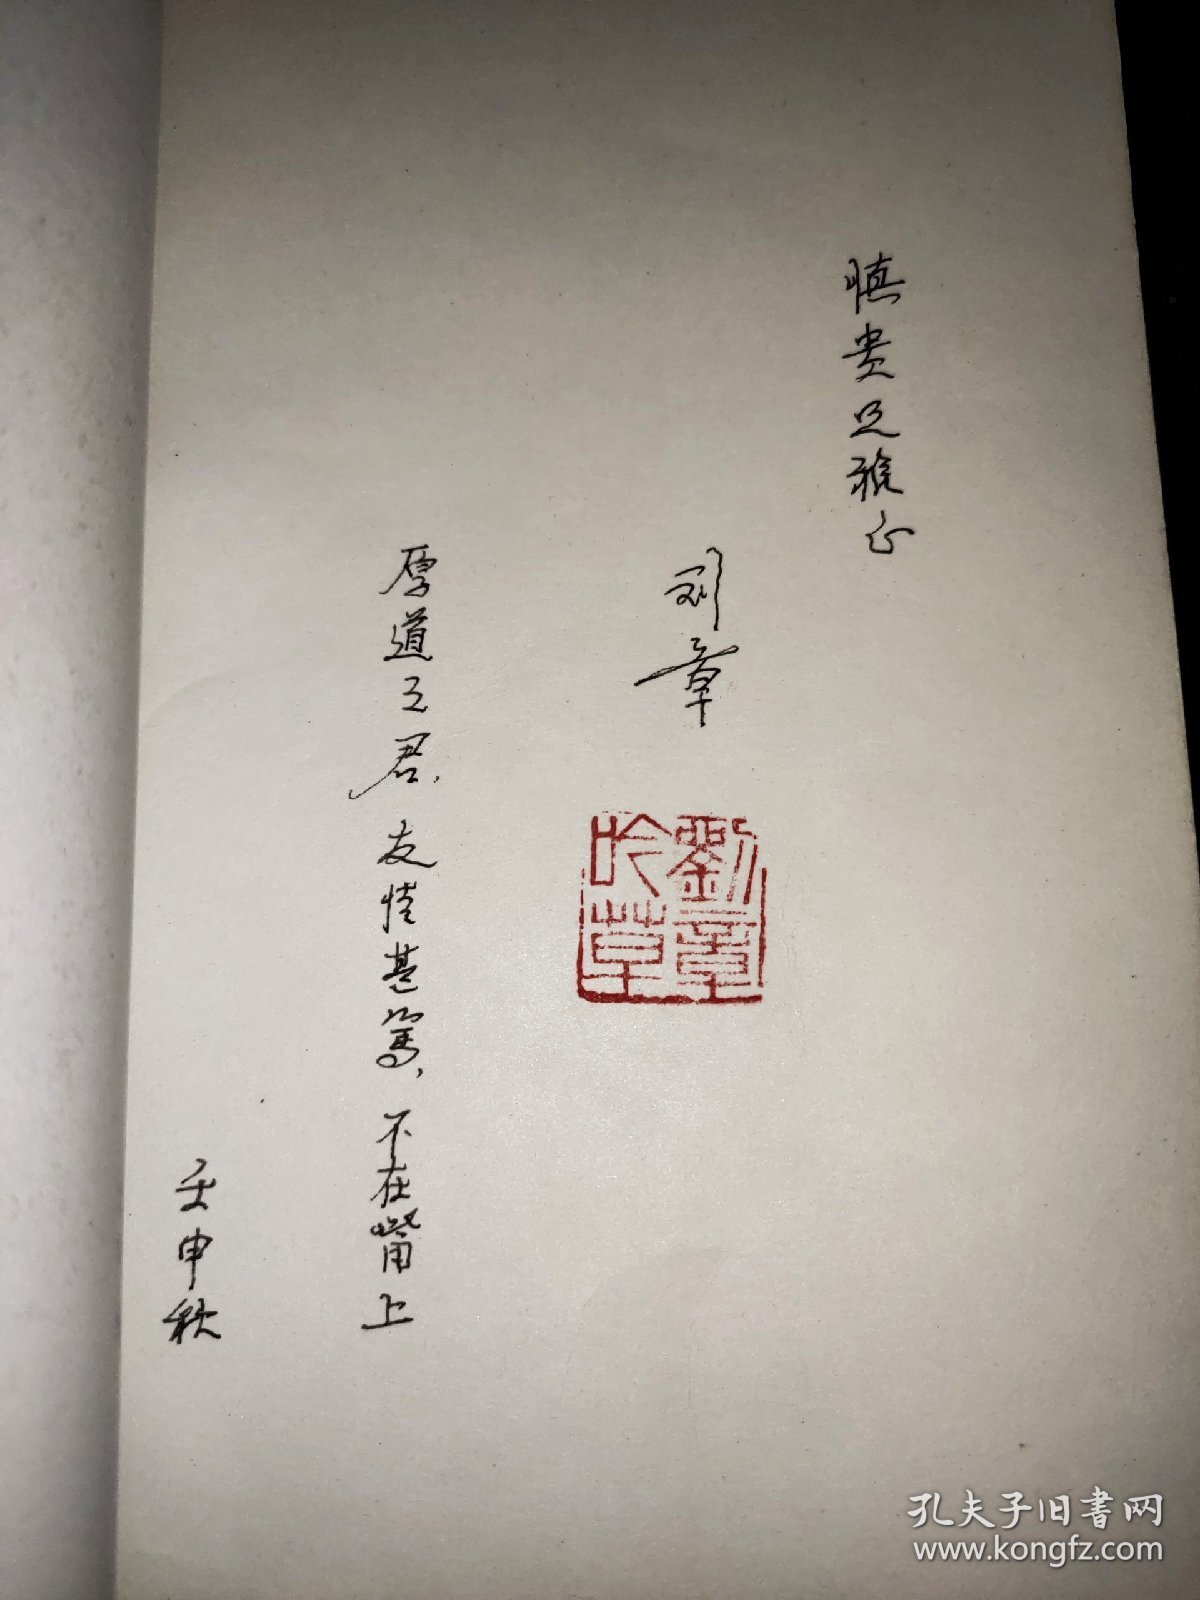 慎贵兄雅正
刘章
劉章
吟草
厚道之君，友情甚笃，不在嘴上
壬申秋
孔夫子旧书网
www.kongfz.com